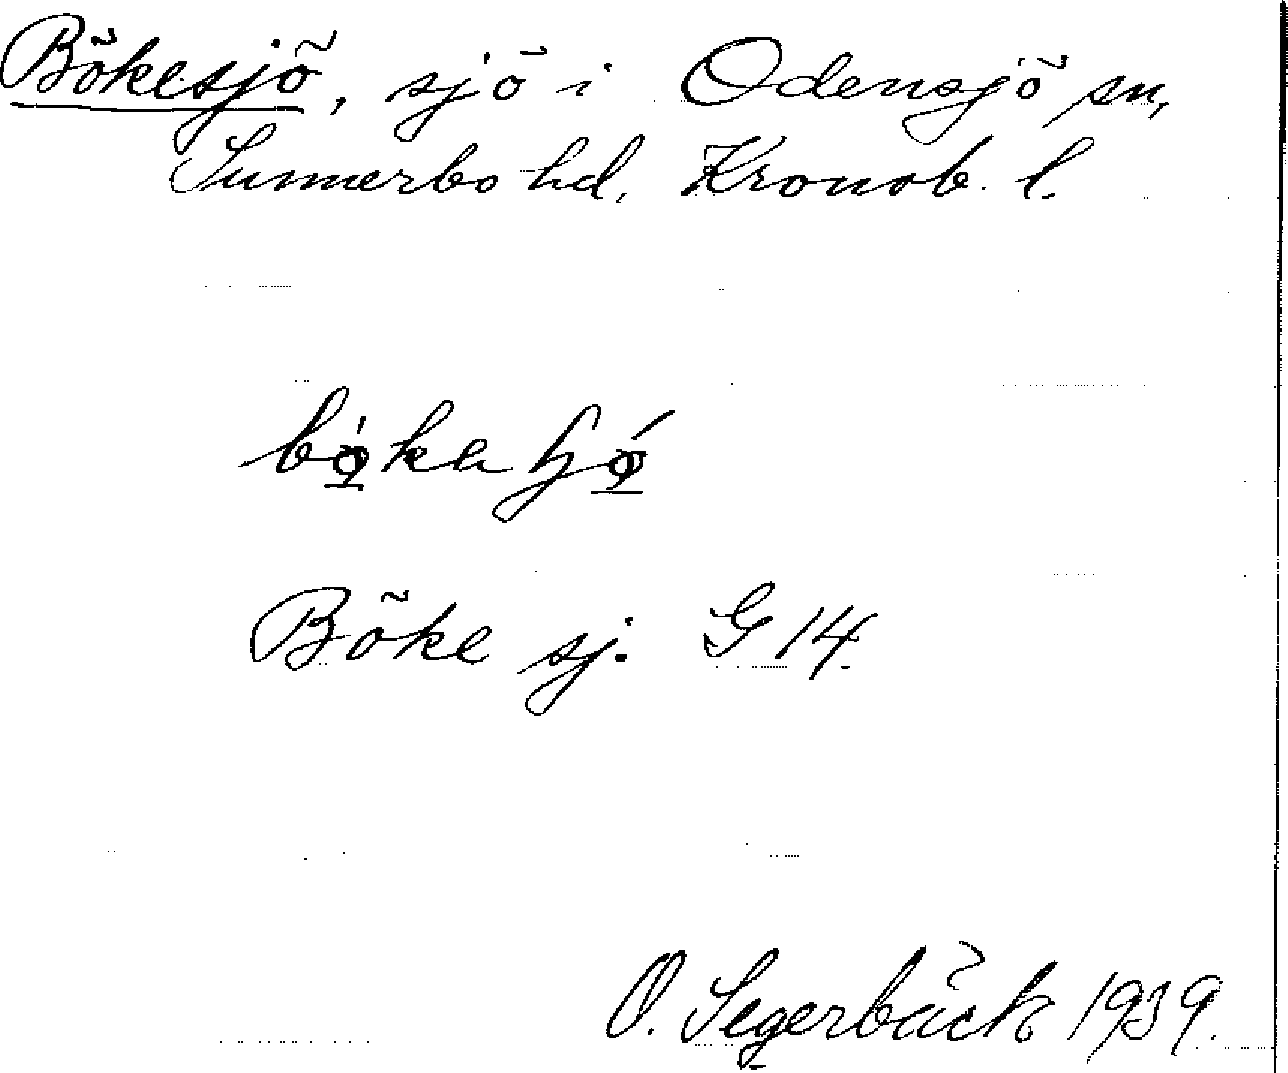 Bökesjö, sjö i Odensjö sn,
Sunnerbo hd, Kronob. l.
Böke sj. G 14.
O. Segerbäck 1939.